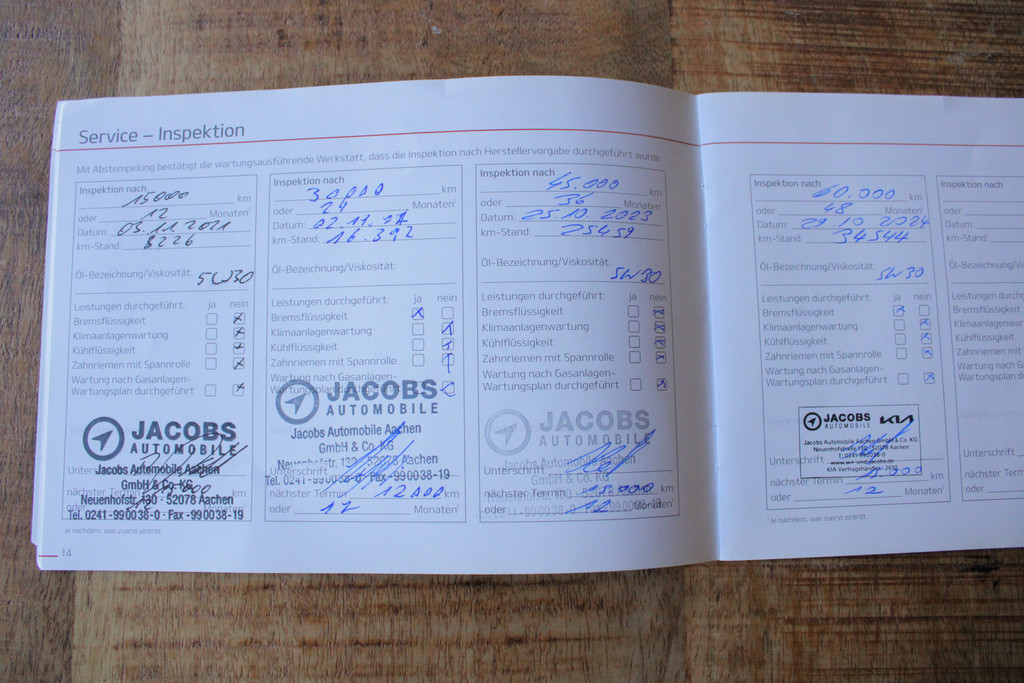 Service – Inspektion
Mit Abstempelung bestätigt die wartungsausführende Werkstatt, dass die Inspektion nach Herstellervorgabe durchgeführt wurde.
Inspektion nach
15000 km
oder 12 Monaten¹
Datum: 05.11.2021
km-Stand: 8226
Öl-Bezeichnung/Viskosität:
5W30
Leistungen durchgeführt: ja nein
Bremsflüssigkeit
Klimaanlagenwartung
Kühlflüssigkeit
Zahnriemen mit Spannrolle
Wartung nach Gasanlagen-
Wartungsplan durchgeführt
JACOBS
AUTOMOBILE
Jacobs Automobile Aachen
GmbH & Co. KG
Neuenhofstr. 130 · 52078 Aachen
Tel. 0241-990038-0 · Fax -990038-19
Unterschrift
nächster Termin
oder
¹ Je nachdem, was zuerst eintritt.
14
Inspektion nach
30.000 km
oder 24 Monaten¹
Datum: 02.11.22
km-Stand: 16.392
Öl-Bezeichnung/Viskosität:
Leistungen durchgeführt: ja nein
Bremsflüssigkeit
Klimaanlagenwartung
Kühlflüssigkeit
Zahnriemen mit Spannrolle
Wartung nach Gasanlagen-
Wartungsplan
JACOBS
AUTOMOBILE
Jacobs Automobile Aachen
GmbH & Co. KG
Neuenhofstr. 130 · 52078 Aachen
Unterschrift
Tel. 0241-990038-0 · Fax -990038-19
nächster Termin 12000 km
oder 12 Monaten¹
Inspektion nach
45.000 km
oder 36 Monaten¹
Datum: 25.10.2023
km-Stand: 25459
Öl-Bezeichnung/Viskosität:
5W30
Leistungen durchgeführt: ja nein
Bremsflüssigkeit
Klimaanlagenwartung
Kühlflüssigkeit
Zahnriemen mit Spannrolle
Wartung nach Gasanlagen-
Wartungsplan durchgeführt
JACOBS
AUTOMOBILE
Jacobs Automobile Aachen
GmbH & Co. KG
Unterschrift
52078 Aachen
nächster Termin km
0241-990038-0 · Fax -990038-19
oder 12 Monaten¹
Inspektion nach
60.000 km
oder 48 Monaten¹
Datum: 29.10.2024
km-Stand: 34544
Öl-Bezeichnung/Viskosität:
5W30
Leistungen durchgeführt: ja nein
Bremsflüssigkeit
Klimaanlagenwartung
Kühlflüssigkeit
Zahnriemen mit Spannrolle
Wartung nach Gasanlagen-
Wartungsplan durchgeführt
JACOBS KIA
AUTOMOBILE
Jacobs Automobile Aachen GmbH & Co. KG
Neuenhofstraße 130 · 52078 Aachen
T. 0241-990038-0
KIA Vertragshändler
Unterschrift
nächster Termin km
oder 12 Monaten¹
¹ Je nachdem, was zuerst eintritt.
Inspektion nach
oder
Datum:
km-Stand:
Öl-Bezeichnung/Vis
Leistungen durchge
Bremsflüssigkeit
Klimaanlagenwartu
Kühlflüssigkeit
Zahnriemen mit Sp
Wartung nach Gas
Wartungsplan du
Unterschrift
nächster Termin
oder